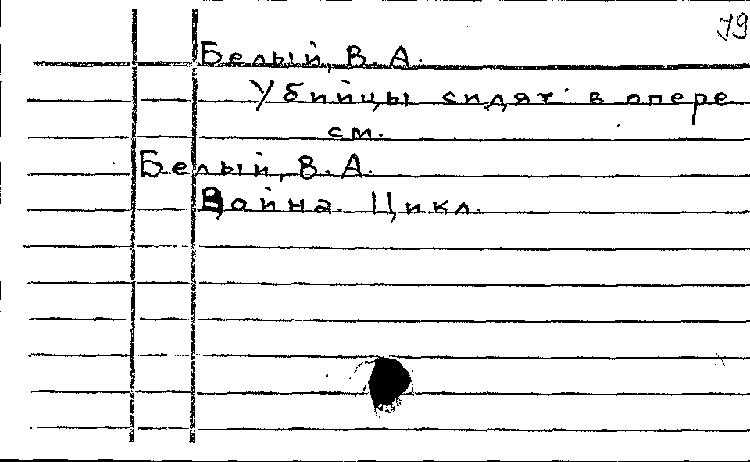 79
Белый, В.А.
Убийцы сидят в опере
см.
Белый, В.А.
Война. Цикл.